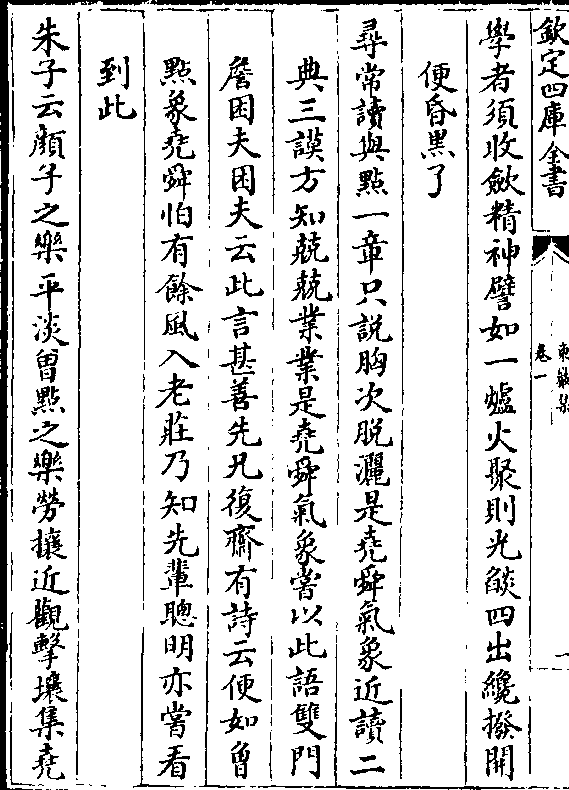 欽定四庫全書
卷一
學者須收斂精神譬如一爐火聚則光燄四出纔撥開
便昏黒了
尋常讀與點一章只説胸次脱灑是堯舜氣象近讀二
典三謨方知兢兢業業是堯舜氣象嘗以此語雙門
詹困夫困夫云此言甚善先兄復齋有詩云便如曾
點象堯舜怕有餘風入老莊乃知先輩聰明亦嘗看
到此
朱子云顔子之樂平淡曾點之樂勞攘近觀擊壤集堯